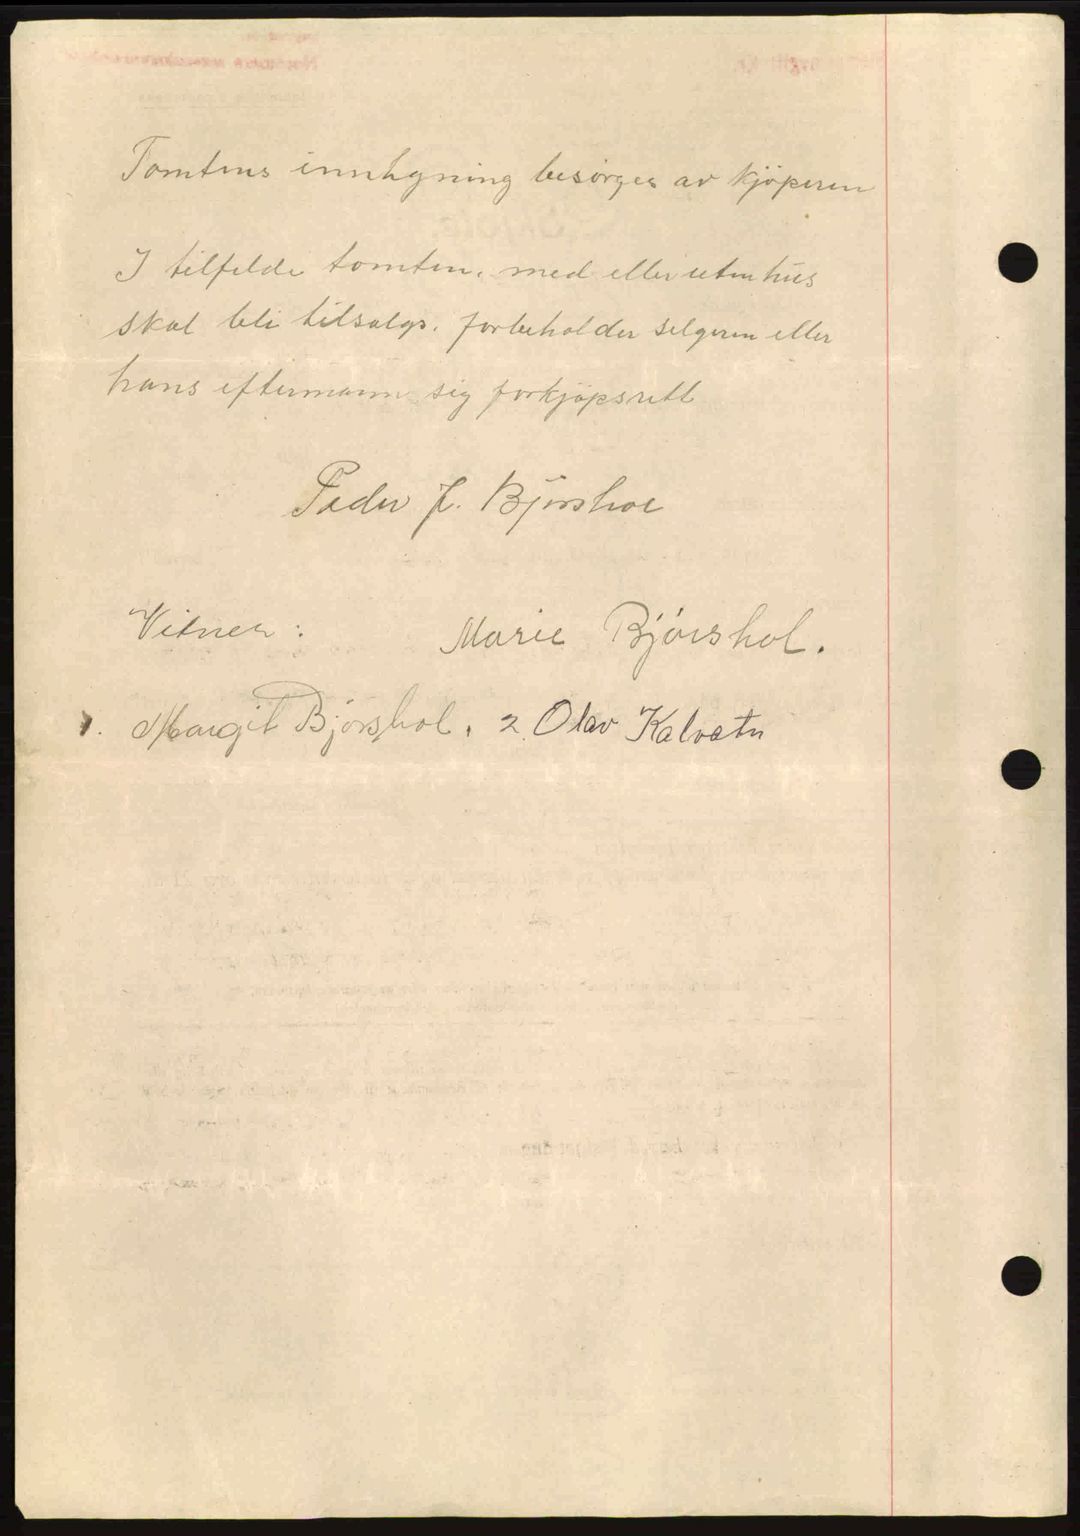 Tomtens innhgning besörges av kjöperen
I tilfelde tomten, med eller uten hus
skal bli tilsalgs. forbeholder selgeren eller
hans eftermann sig forkjöpsrett
Peder J. Bjørshol
Vitner: Marie Bjórshol.
1. Margit Bjørshol. 2 Olav Kalvatn